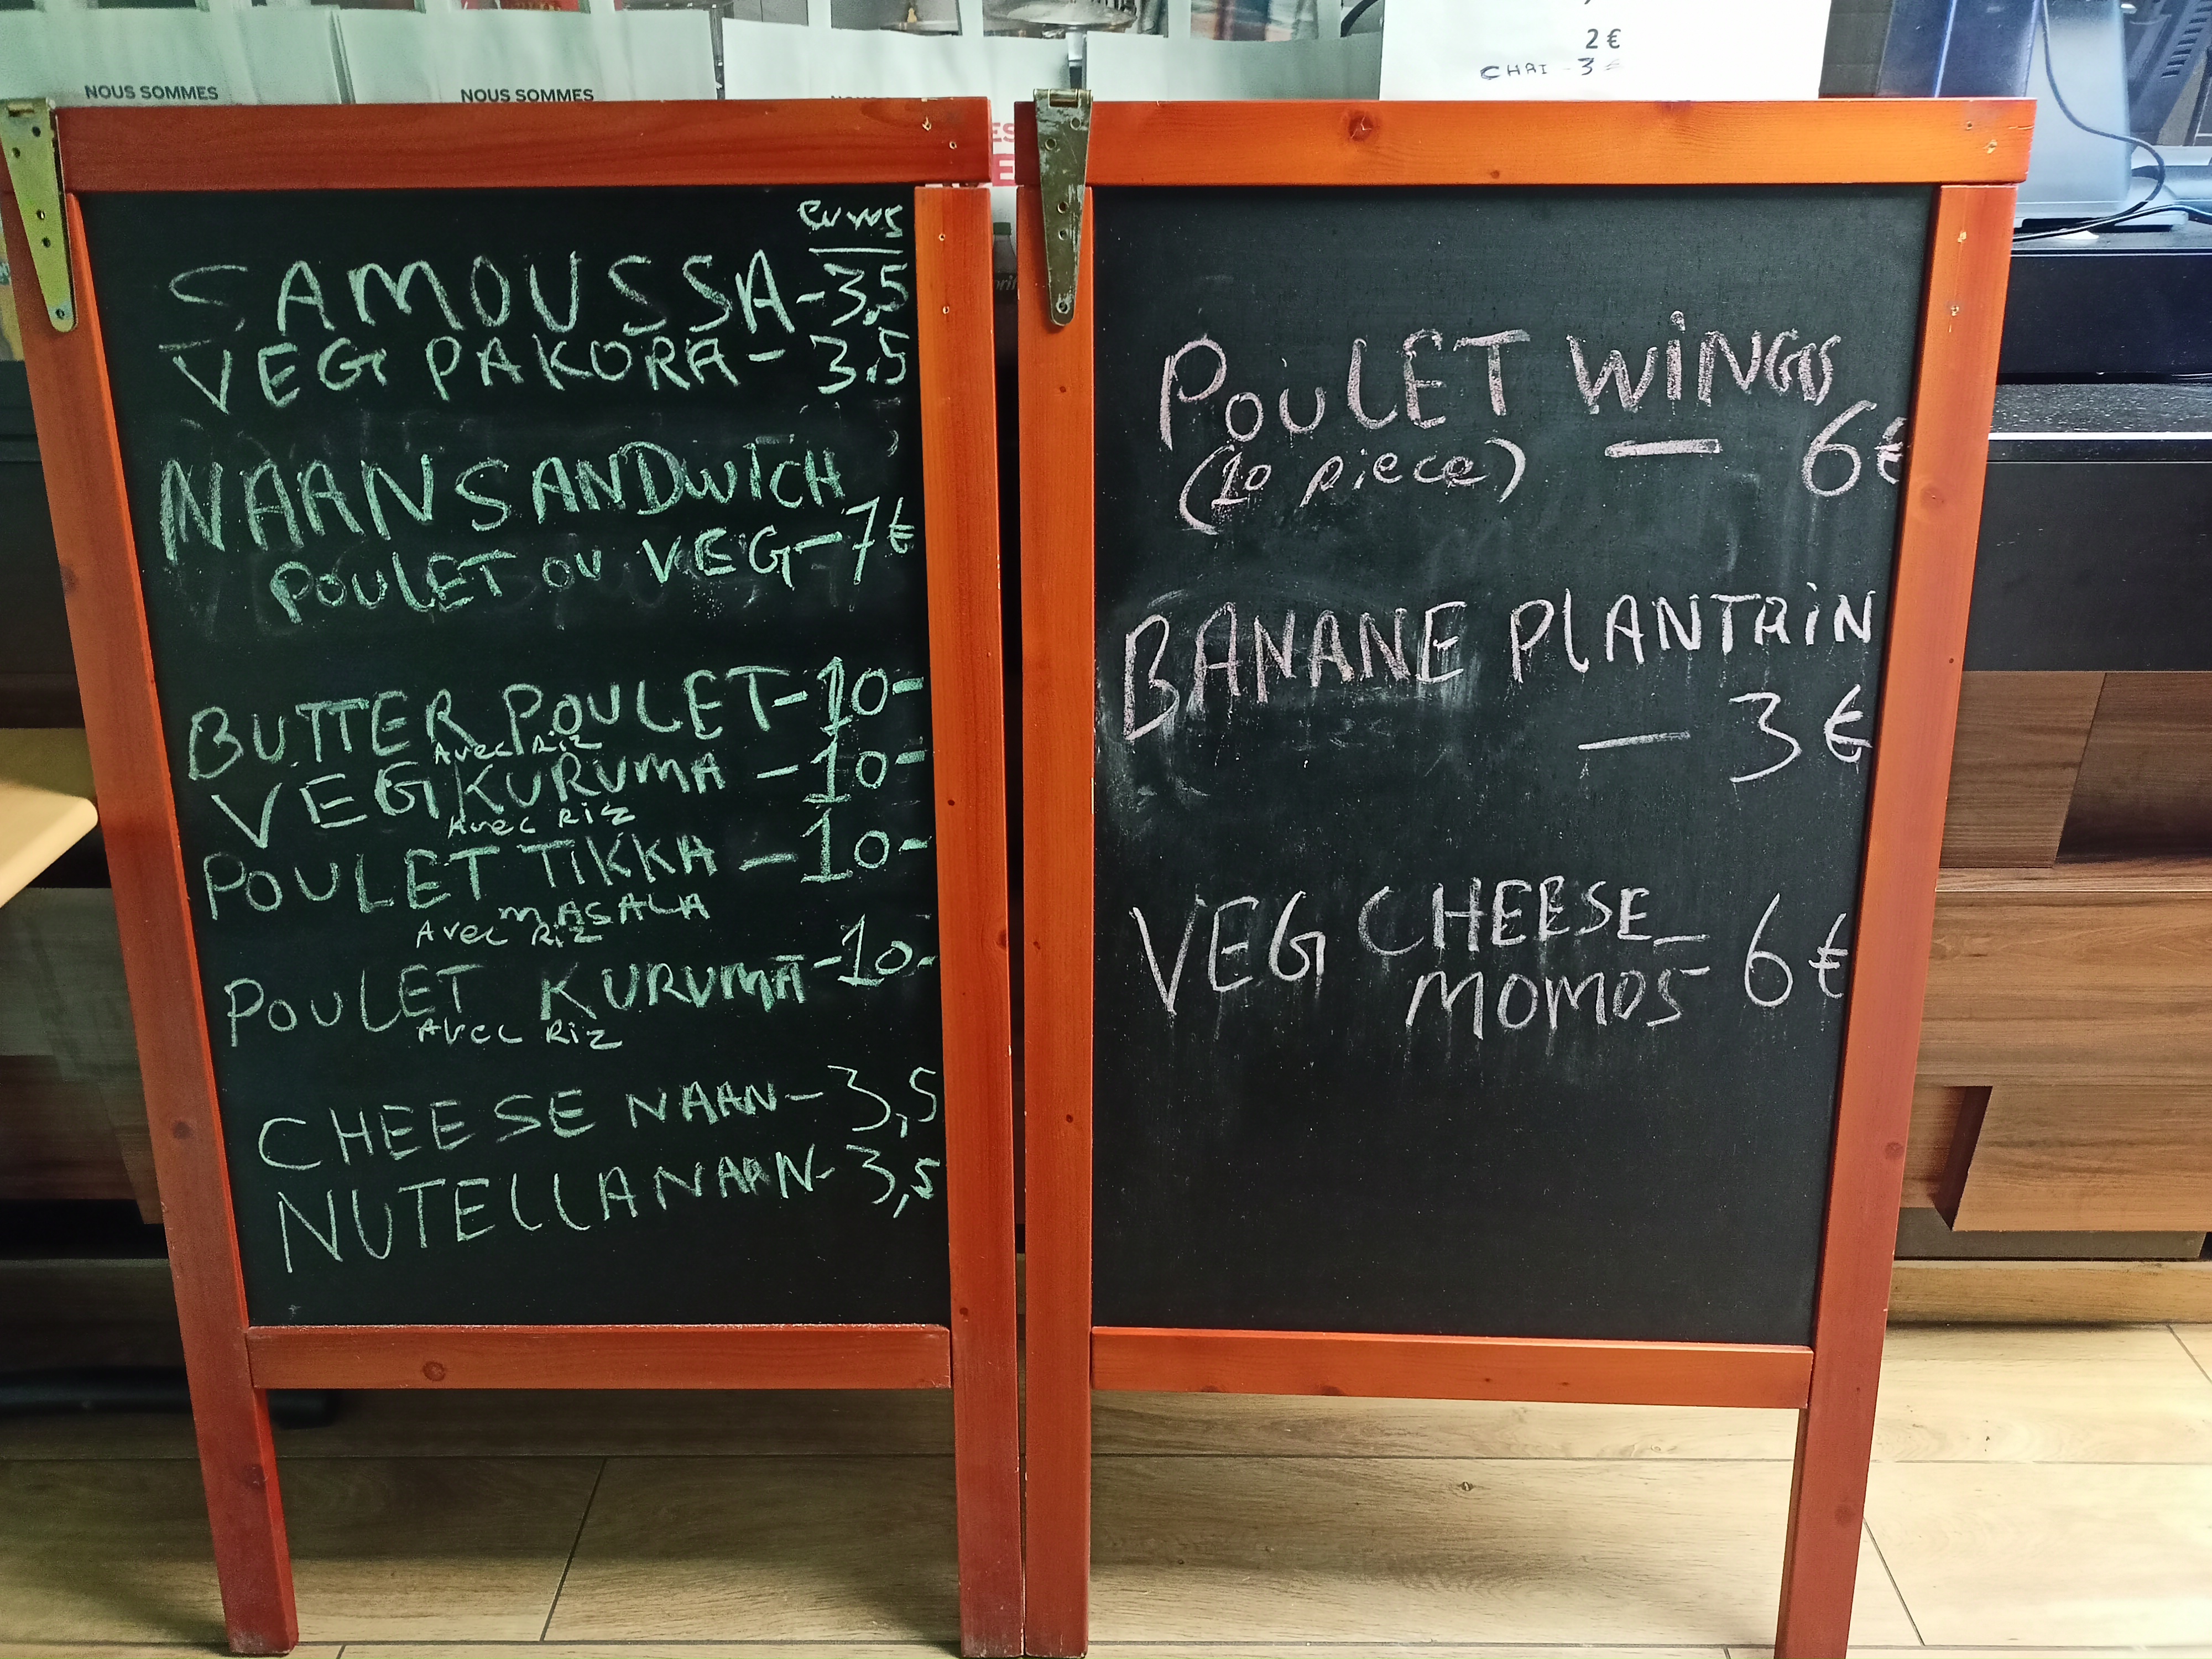 NOUS SOMMES
NOUS SOMMES
2 €
CHAI - 3 €
SAMOUSSA - 3,5
VEG PAKORA - 3,5
NAAN SANDWICH
POULET OU VEG - 7 €
BUTTER POULET - 10 -
Avec Riz
VEG KURUMA - 10 -
Avec Riz
POULET TIKKA - 10 -
MASALA
Avec Riz
POULET KURUMA - 10 -
Avec Riz
CHEESE NAAN - 3,5
NUTELLA NAAN - 3,5
POULET WINGS
(10 piece) — 6 €
BANANE PLANTAIN
— 3 €
VEG CHEESE
MOMOS - 6 €